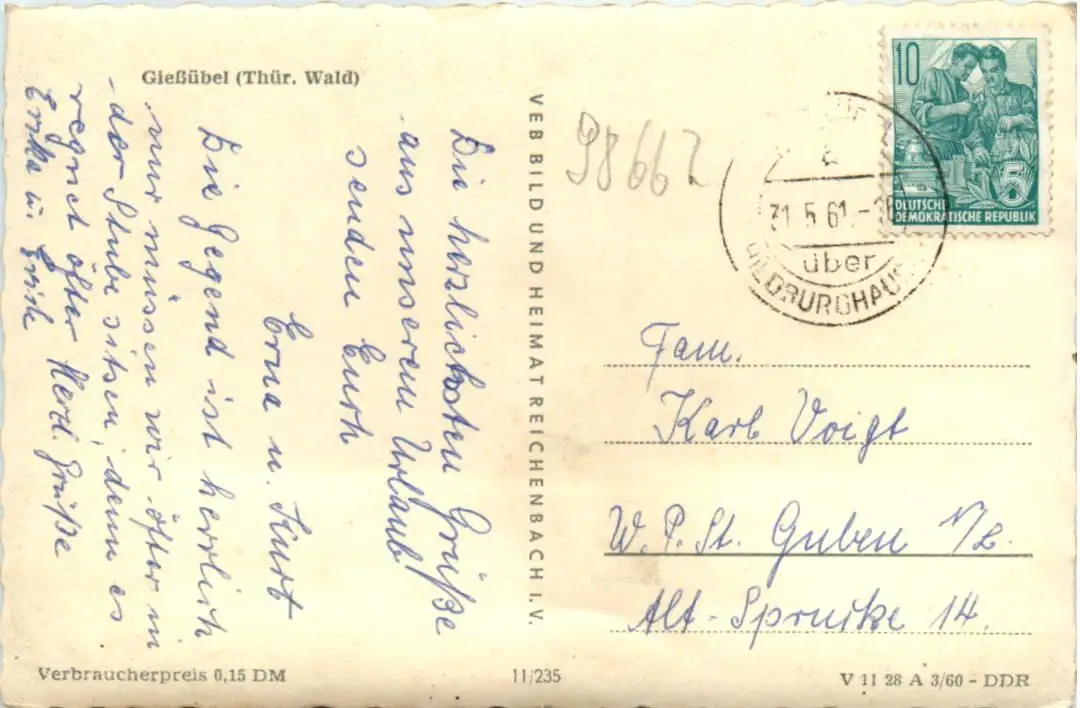 Gießübel (Thür. Wald)
Die herzlichsten Grüße
aus unserem Urlaub
senden Euch
Erna u. Kurt
Die Gegend ist herrlich
nur müssen wir öfter in
der Stube sitsen, denn es
regnet öfter Herzl. Grüße
Erika u.
VEB BILD UND HEIMAT REICHENBACH I. V.
98662
10
5
DEUTSCHE
DEMOKRATISCHE REPUBLIK
31.5.61.-
über
HILDBURGHAUS
Fam.
Karl Voigt
W. P. St. Guben N/L.
Alt-Sprucke 14.
Verbraucherpreis 0,15 DM
11/235
V 11 28 A 3/60 - DDR